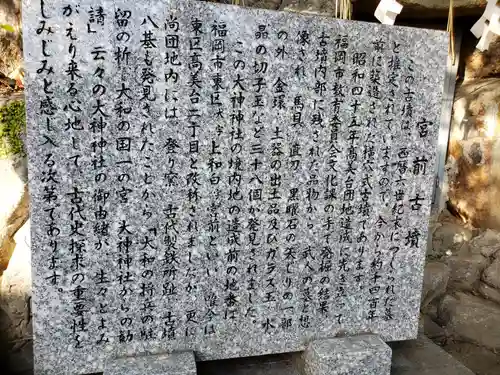 宮前古墳
この古墳は、西暦六世紀末につくられた墓
と推定されていますので、今から約千四百年
前に築造された横穴式古墳であります。
昭和四十五年高美台団地造成に先立って
福岡市教育委員会文化課の手で発掘の結果
古墳内部に残された品物から、武人の墓と想
像され、馬具、直刀、黒眼石の矢じりの一部
の外、金環、土器の出土品及びガラス玉、水
晶の切子玉など三十八個が発見されました。
この大神神社の境内地の造成前の地番は
福岡市東区大字上和白字宮前といい、唯今は
東区高美台二丁目と改称されましたが、更に
尚団地内には、登り窯、古代製鉄所趾、古墳
八基も発見されたことから「大和の折立の駐
留の折、大和の国一の宮、大神神社からの勧
請」云々の大神神社の御由緒が、生々とよみ
がえり来る心地して、古代史探求の重要性を
しみじみと感じ入る次第であります。